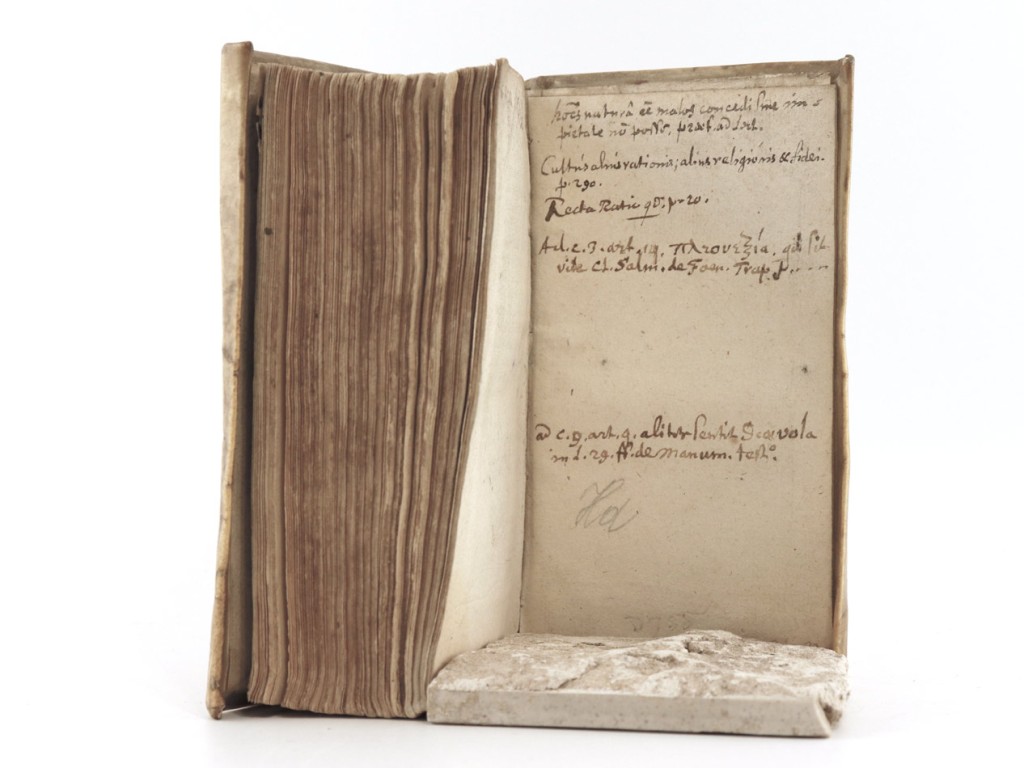 hoēs naturâ eē malos concedi sine im
pietate nō posse. præf. ad Lect.
Cultus alius rationis; alius religionis & fidei.
p. 290.
Recta Ratio qd. p. 20.
Ad. c. 3. art. 19. πλεονεξία. qd sit
vide Cl. Salm. de Foen. Trap. p. ....
ad c. 9. art. 9. aliter sentit Scævola
in l. 29. ff. de Manum. test.
Hd